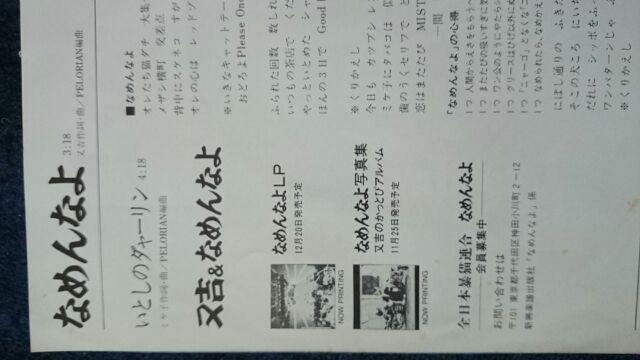 なめんなよ 3:18
又吉作詞・曲／PELORIAN編曲
いとしのダャーリン 4:18
ミケ子作詞・曲／PELORIAN編曲
又吉&なめんなよ
■なめんなよ
オレたち猫ダチ 大集
メザシ横町 交差点
背中にスケネコ すが
オレの心は レッドゾ
※いきなキャットテー
おどろよPlease One
ふられた回数 数しれ
いつもの茶店で くだ
やっといとめた シャ
ほんの3日で Good
※くりかえし
今日も カツブシ レ
ミケ子にタバコは 似
歯のうくセリフで と
恋はまたたび MIST
「なめんなよ」の心得
1つ 人間からえさをもらうべ
1つ またたびの吸いすぎに気
1つ ワン公のようにやたらシ
1つ グリースはひげ以外に
1つ 「ニャーゴ」となくな「ニ
1つ なめられたら、なめかえ
にぼし通りの ふきだ
そこの犬ころ にいち
だれに シッポをふっ
ワンパターンじゃ ふ
※くりかえし
なめんなよLP
12月20日発売予定
NOW PRINTING
なめんなよ写真集
又吉のかっとびアルバム
11月25日発売予定
NOW PRINTING
全日本暴猫連合 なめんなよ
会員募集中
お問い合わせは
〒101 東京都千代田区神田小川町2-12
新興楽譜出版社「なめんなよ」係